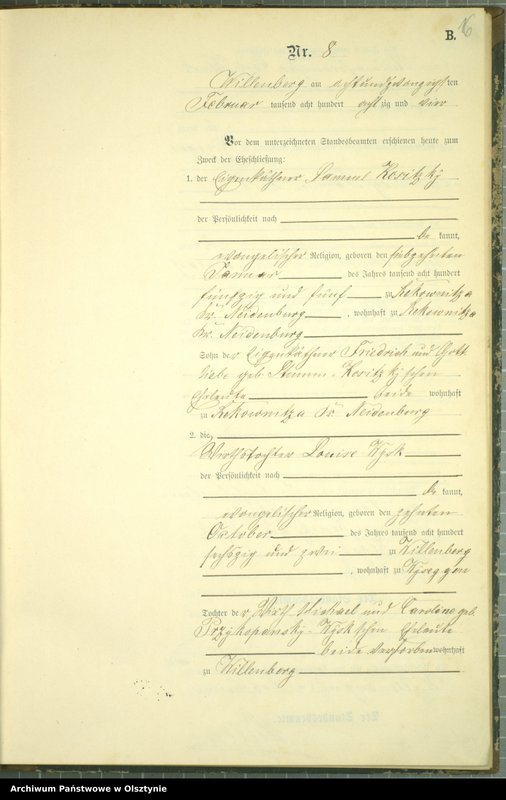 B. 16
Nr. 8
Willenberg am achtundzwanzigsten
Februar tausend acht hundert achtzig und vier
Vor dem unterzeichneten Standesbeamten erschienen heute zum
Zweck der Eheschließung:
1. der Eigenkäthner Samuel Kositzky
der Persönlichkeit nach
be kannt,
evangelischer Religion, geboren den siebzehnten
Januar des Jahres tausend acht hundert
fünfzig und fünf zu Rekownitza
Kr. Neidenburg, wohnhaft zu Rekownitza
Kr. Neidenburg
Sohn des Eigenkäthner Friedrich und Gott
liebe geb. Kositzky'schen
Eheleute beide wohnhaft
zu Rekownitza Kr. Neidenburg
2. die
Wirthstochter Louise Kysk
der Persönlichkeit nach
be kannt,
evangelischer Religion, geboren den zehnten
October des Jahres tausend acht hundert
sechszig und zwei zu Willenberg
, wohnhaft zu
Tochter der Wirth Michael und Caroline geb.
Przykopanski Kysk'schen Eheleute
beide verstorben wohnhaft
zu Willenberg
Archiwum Państwowe w Olsztynie